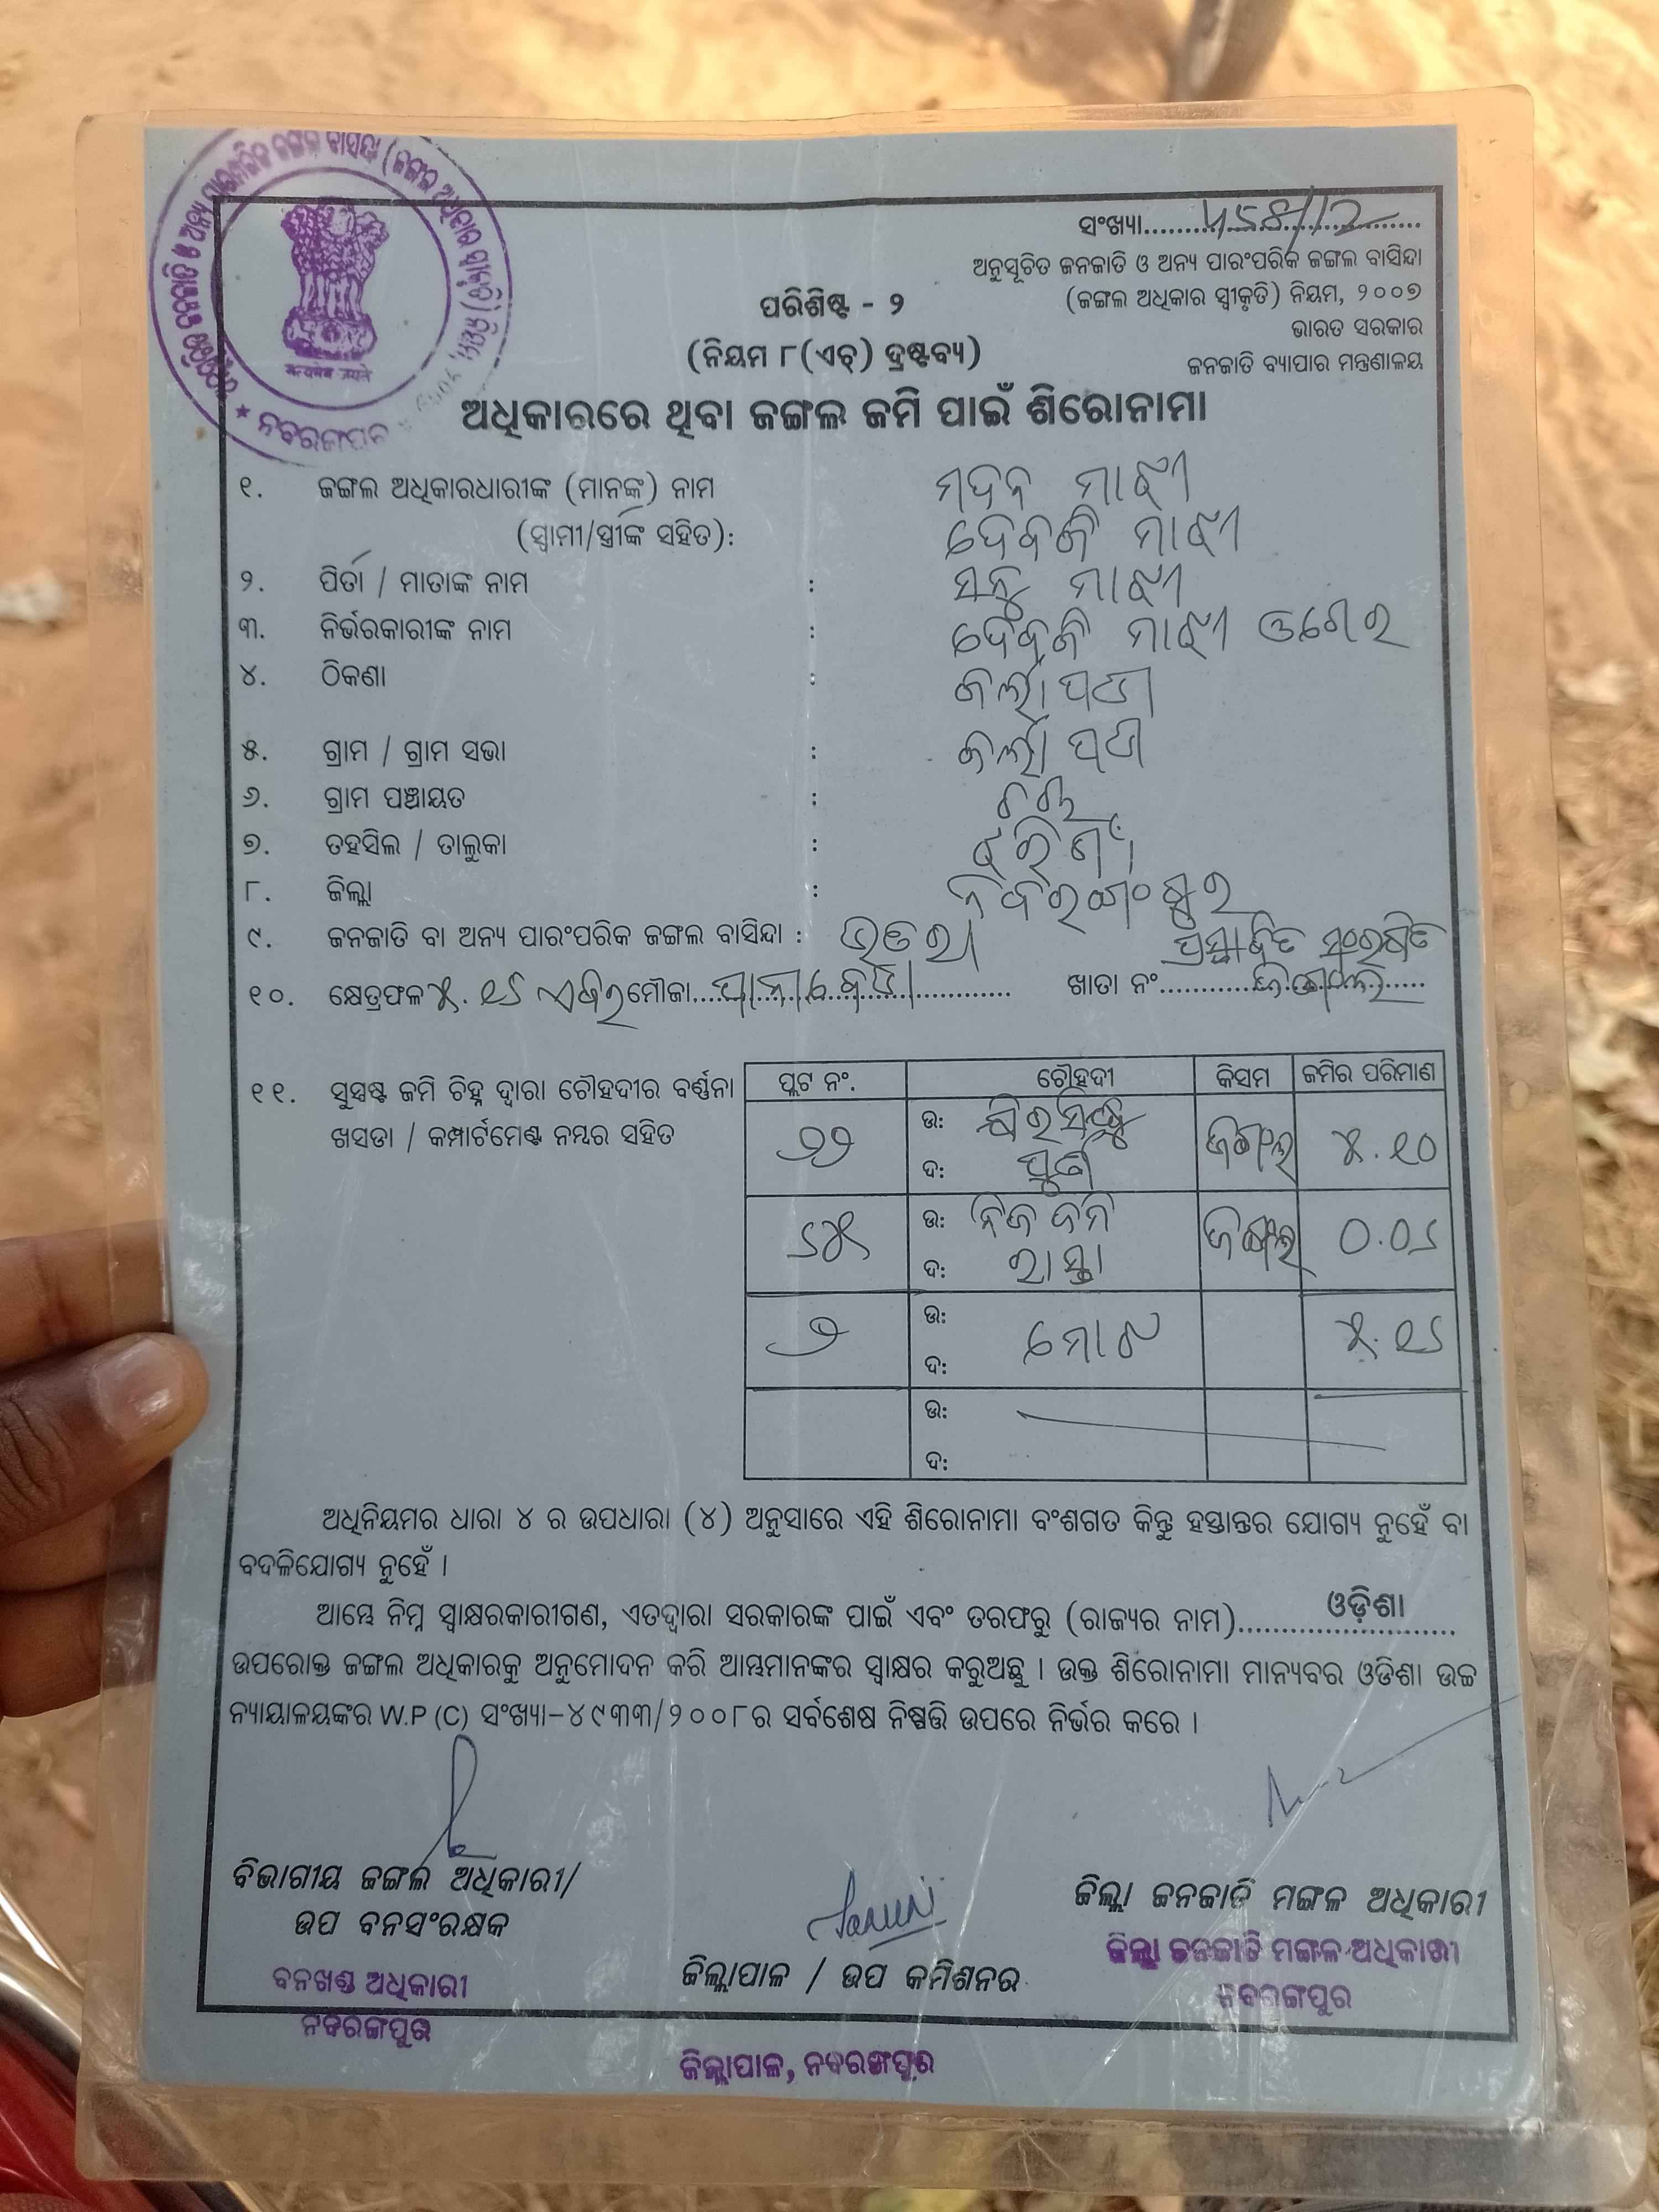 ସଂଖ୍ୟା
ଅନୁସୂଚିତ ଜନଜାତି ଓ ଅନ୍ୟ ପାରଂପରିକ ଜଙ୍ଗଲ ବାସିନ୍ଦା
(ଜଙ୍ଗଲ ଅଧିକାର ସ୍ୱୀକୃତି) ନିୟମ, ୨୦୦୭
ଭାରତ ସରକାର
ଜନଜାତି ବ୍ୟାପାର ମନ୍ତ୍ରଣାଳୟ
ପରିଶିଷ୍ଟ - ୨
(ନିୟମ ୮(ଏଚ୍) ଦ୍ରଷ୍ଟବ୍ୟ)
ଅଧିକାରରେ ଥିବା ଜଙ୍ଗଲ ଜମି ପାଇଁ ଶିରୋନାମା
୧. ଜଙ୍ଗଲ ଅଧିକାରଧାରୀଙ୍କ (ମାନଙ୍କ) ନାମ ମଦନ ମାଝୀ
(ସ୍ୱାମୀ/ସ୍ତ୍ରୀଙ୍କ ସହିତ): ଦେବକି ମାଝୀ
୨. ପିତା / ମାତାଙ୍କ ନାମ : ମାଝୀ
୩. ନିର୍ଭରକାରୀଙ୍କ ନାମ : ଦେବକି ମାଝୀ ଓଗେର
୪. ଠିକଣା :
୫. ଗ୍ରାମ / ଗ୍ରାମ ସଭା :
୬. ଗ୍ରାମ ପଞ୍ଚାୟତ :
୭. ତହସିଲ / ତାଲୁକା : ଝରିଗାଁ
୮. ଜିଲ୍ଲା : ନବରଗଂପୁର
୯. ଜନଜାତି ବା ଅନ୍ୟ ପାରଂପରିକ ଜଙ୍ଗଲ ବାସିନ୍ଦା : ଭତରା ପ୍ରସ୍ତାବିତ ସଂରକ୍ଷିତ
୧୦. କ୍ଷେତ୍ରଫଳ ୫.୧୨ ଏକର ମୌଜା ଖାତା ନଂ
୧୧. ସୁସ୍ପଷ୍ଟ ଜମି ଚିହ୍ନ ଦ୍ୱାରା ଚୌହଦୀର ବର୍ଣ୍ଣନା
ଖସଡା / କମ୍ପାର୍ଟମେଣ୍ଟ ନମ୍ବର ସହିତ
ପ୍ଲଟ ନଂ. ଚୌହଦୀ କିସମ ଜମିର ପରିମାଣ
ଉ: ଜଙ୍ଗଲ ୫.୧୦
ଦ:
ଉ: ନିଜ ଜମି ଜଙ୍ଗଲ ୦.୦୨
ଦ: ରାସ୍ତା
୨ ଉ: ମୋଟ ୫.୧୨
ଦ:
ଉ:
ଦ:
ଅଧିନିୟମର ଧାରା ୪ ର ଉପଧାରା (୪) ଅନୁସାରେ ଏହି ଶିରୋନାମା ବଂଶଗତ କିନ୍ତୁ ହସ୍ତାନ୍ତର ଯୋଗ୍ୟ ନୁହେଁ ବା
ବଦଳିଯୋଗ୍ୟ ନୁହେଁ ।
ଆମ୍ଭେ ନିମ୍ନ ସ୍ୱାକ୍ଷରକାରୀଗଣ, ଏତଦ୍ୱାରା ସରକାରଙ୍କ ପାଇଁ ଏବଂ ତରଫରୁ (ରାଜ୍ୟର ନାମ) ଓଡ଼ିଶା
ଉପରୋକ୍ତ ଜଙ୍ଗଲ ଅଧିକାରକୁ ଅନୁମୋଦନ କରି ଆମ୍ଭମାନଙ୍କର ସ୍ୱାକ୍ଷର କରୁଅଛୁ । ଉକ୍ତ ଶିରୋନାମା ମାନ୍ୟବର ଓଡିଶା ଉଚ୍ଚ
ନ୍ୟାୟାଳୟଙ୍କର W.P (C) ସଂଖ୍ୟା-୪୯୩୩/୨୦୦୮ର ସର୍ବଶେଷ ନିଷ୍ପତ୍ତି ଉପରେ ନିର୍ଭର କରେ ।
ବିଭାଗୀୟ ଜଙ୍ଗଲ ଅଧିକାରୀ/
ଉପ ବନସଂରକ୍ଷକ
ବନଖଣ୍ଡ ଅଧିକାରୀ
ନବରଙ୍ଗପୁର
ଜିଲ୍ଲାପାଳ / ଉପ କମିଶନର
ଜିଲ୍ଲାପାଳ, ନବରଙ୍ଗପୁର
ଜିଲ୍ଲା ଜନଜାତି ମଙ୍ଗଳ ଅଧିକାରୀ
ଜିଲ୍ଲା ଜନଜାତି ମଙ୍ଗଳ ଅଧିକାରୀ
ନବରଙ୍ଗପୁର